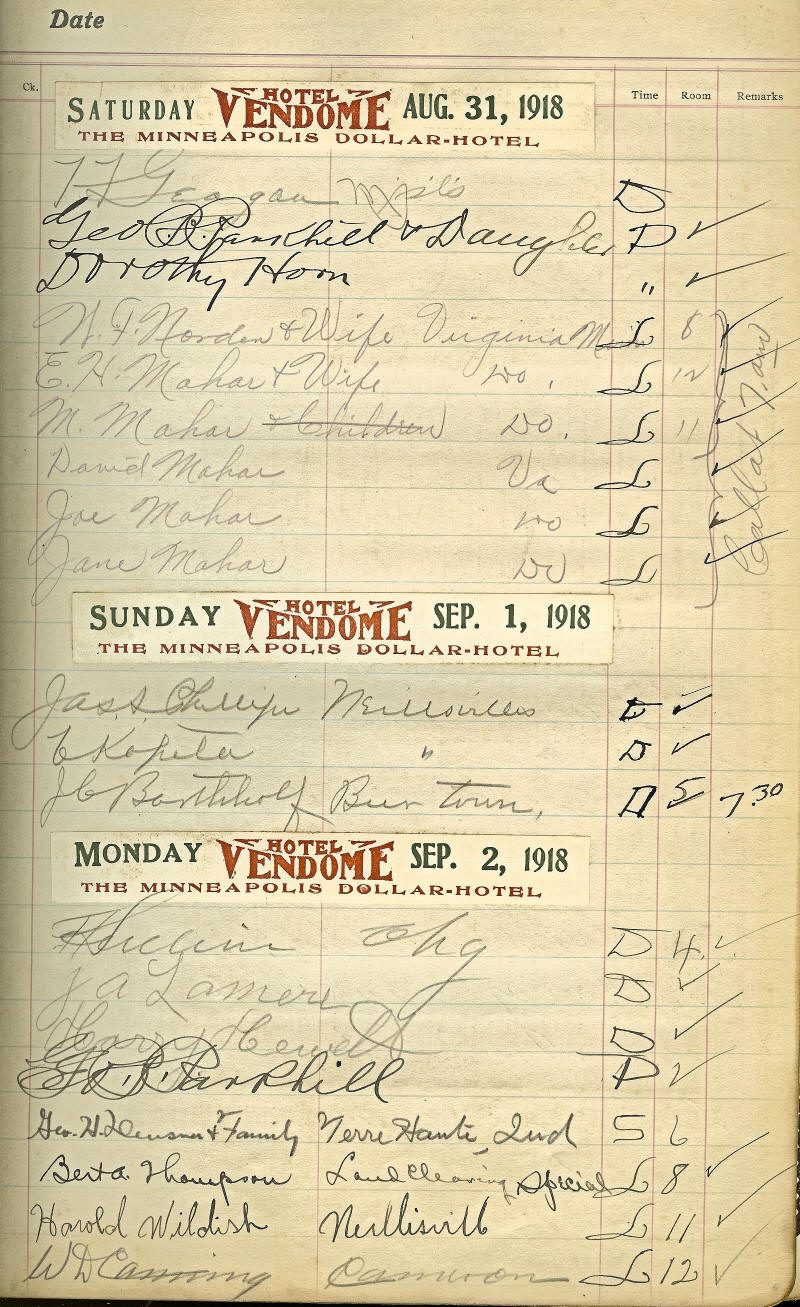 Date
Ck. Time Room Remarks
SATURDAY HOTEL VENDOME AUG. 31, 1918
THE MINNEAPOLIS DOLLAR-HOTEL
Geagan Mpls D
Geo B. Parkhill & Daughter D ✓
Dorothy Horn " ✓
N. F. Norden & Wife Virginia Minn L 8 ✓
E. H. Mahar & Wife Do. L 12 ✓
M. Mahar & Children Do. L 11 ✓
David Mahar Va L ✓
Joe Mahar Do L ✓
Jane Mahar Do L ✓
Call at 7. am
SUNDAY HOTEL VENDOME SEP. 1, 1918
THE MINNEAPOLIS DOLLAR-HOTEL
Jas. S. Phillips Neillsville D ✓
" D ✓
J C Barthholf D 5 ✓ 7 30
MONDAY HOTEL VENDOME SEP. 2, 1918
THE MINNEAPOLIS DOLLAR-HOTEL
Chg D 4. ✓
J A Lamere D ✓
Harry Hewett D ✓
Geo. B. Parkhill D ✓
Geo. H. & Family Terre Haute, Ind S 6
Bert A Thompson Land Clearing Special L 8 ✓
Harold Wildish Neillsvill L 11 ✓
W D Canning Cameron L 12 ✓